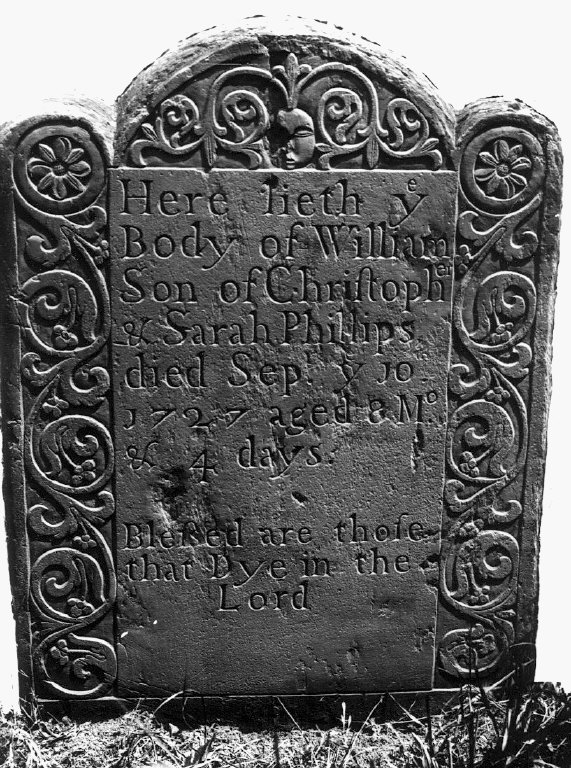 Here lieth yͤ
Body of William
Son of Chriſtopher
& Sarah Phillips
died Sepͭ. yͤ 10
1727 aged 8 Mº.
& 4 days.
Bleſsed are thoſe
that Dye in the
Lord